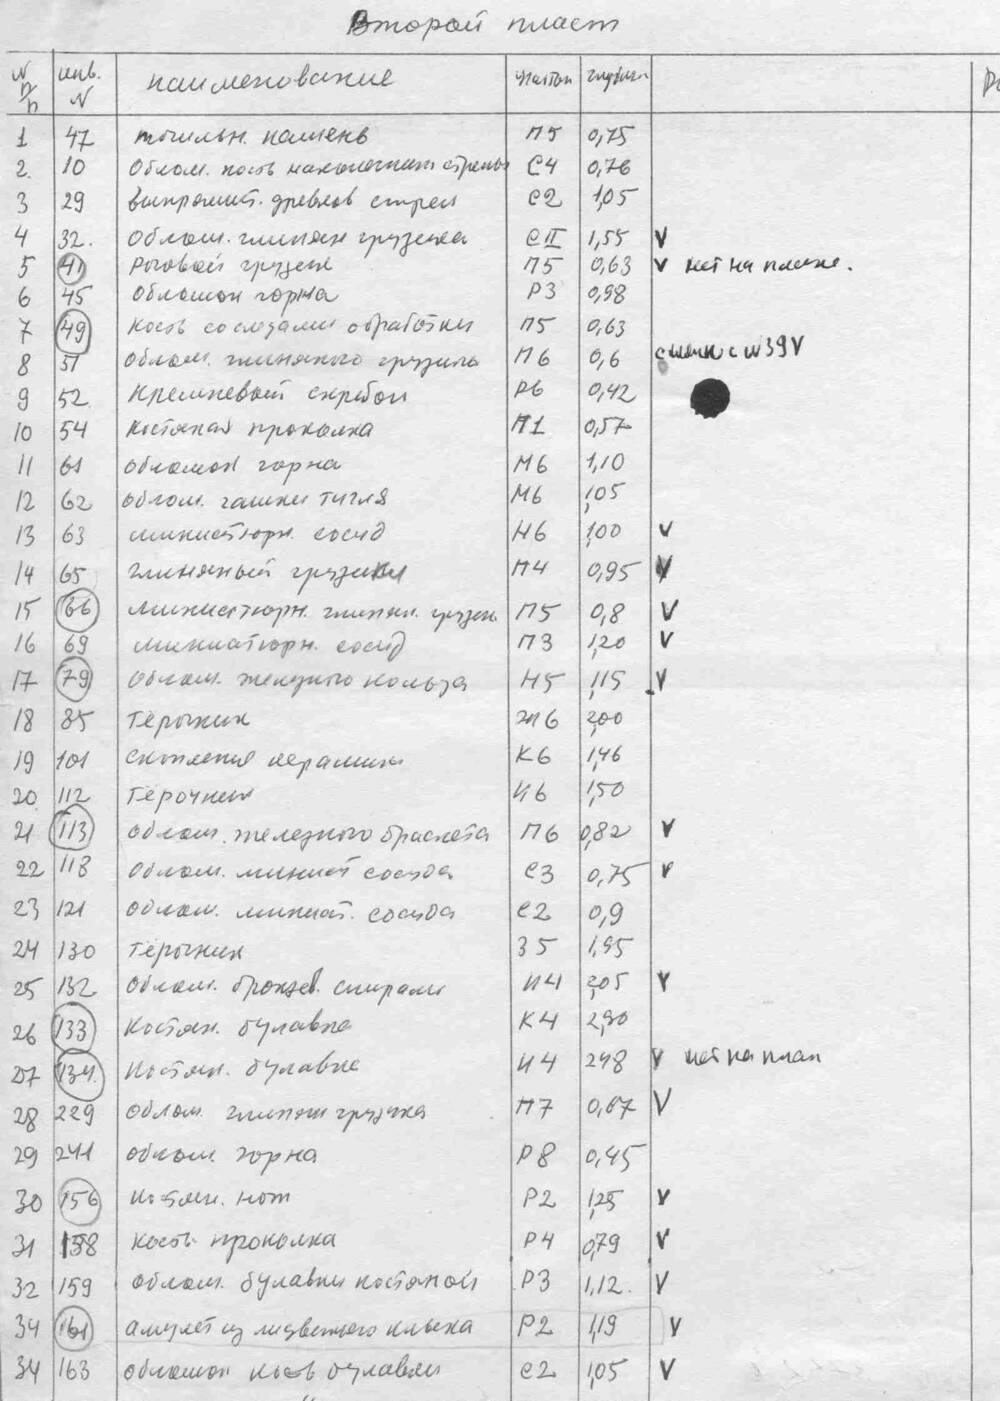 Второй пласт
N п/п инв. N наименование глубин
1 47 точильн. камень П5 0,75
2. 10 Облом. кость наконечник стрелы С4 0,76
3 29 выпрямит. древков стрел С2 1,05
4 32. Облом. глинян грузика СII 1,55 V
5 41 Роговой грузик П5 0,63 V нет на плане.
6 45 Обломок горна Р3 0,98
7 49 Кость со следами обработки П5 0,63
8 51 облом. глиняного грузила П6 0,6 с N39 V
9 52 Кремневый скребок Р6 0,42
10 54 Костяная проколка П1 0,57
11 61 обломок горна М6 1,10
12 62 облом. чашки тигля М6 1,05
13 63 миниатюрн. сосуд Н6 1,00 V
14 65 глиняный грузик П4 0,95 V
15 66 миниатюрн. глинян. грузик. П5 0,8 V
16 69 миниатюрн. сосуд П3 1,20 V
17 79 Облом. железного кольца Н5 1,15 V
18 85 Тёрочник 2,00
19 101 скопление керамики К6 1,46
20 112 Тёрочник И6 1,50
21 113 облом. железного браслета П6 0,82 V
22 118 Облом. миниат сосуда С3 0,75 V
23 121 облом. миниат. сосуда С2 0,9
24 130 Тёрочник З5 1,95
25 132 Облом. бронзов. спирали И4 2,05 V
26 133 Костян. булавка К4 2,90
27 134. Костян. булавка И4 2,48 V нет на план
28 229 облом. глинян грузика П7 0,67 V
29 241 облом. горна Р8 0,45
30 156 Костян. нож Р2 1,25 V
31 158 Кость проколка Р4 0,79 V
32 159 облом. булавки костяной Р3 1,12. V
34 161 амулет из медвежьего клыка Р2 1,19 V
34 163 обломок кость булавки С2 1,05 V